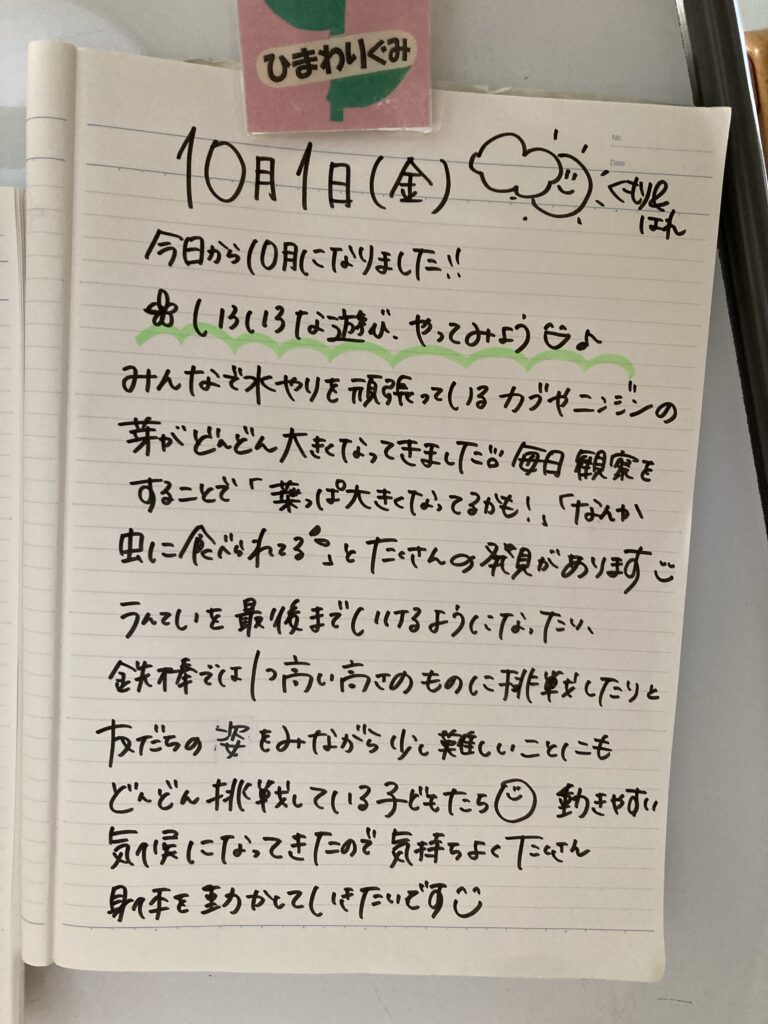 ひまわりぐみ
No.
Date
10月1日(金)
くもり&
はれ
今日から10月になりました!!
いろいろな遊び、やってみよう♪
みんなで水やりを頑張っているカブやニンジンの
芽がどんどん大きくなってきました!! 毎日観察を
することで「葉っぱ大きくなってるかも!」「なんか
虫に食べられてる」とたくさんの発見があります
うんていを最後までいけるようになったり、
鉄棒では1つ高い高さのものに挑戦したりと
友だちの姿をみながら少し難しいことにも
どんどん挑戦している子どもたち 動きやすい
気候になってきたので気持ちよくたくさん
身体を動かしていきたいです